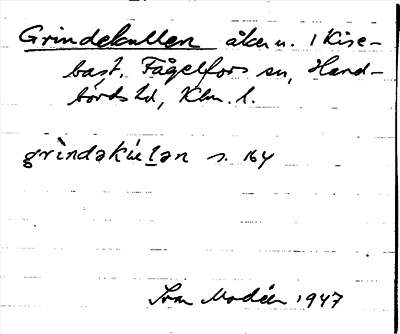 Grindekullen åkern. i Kise-
bast. Fågelfors sn, Hand-
börds hd, Klm. l.
grìndəkùlən s. 164
Ivar Modéer 1947